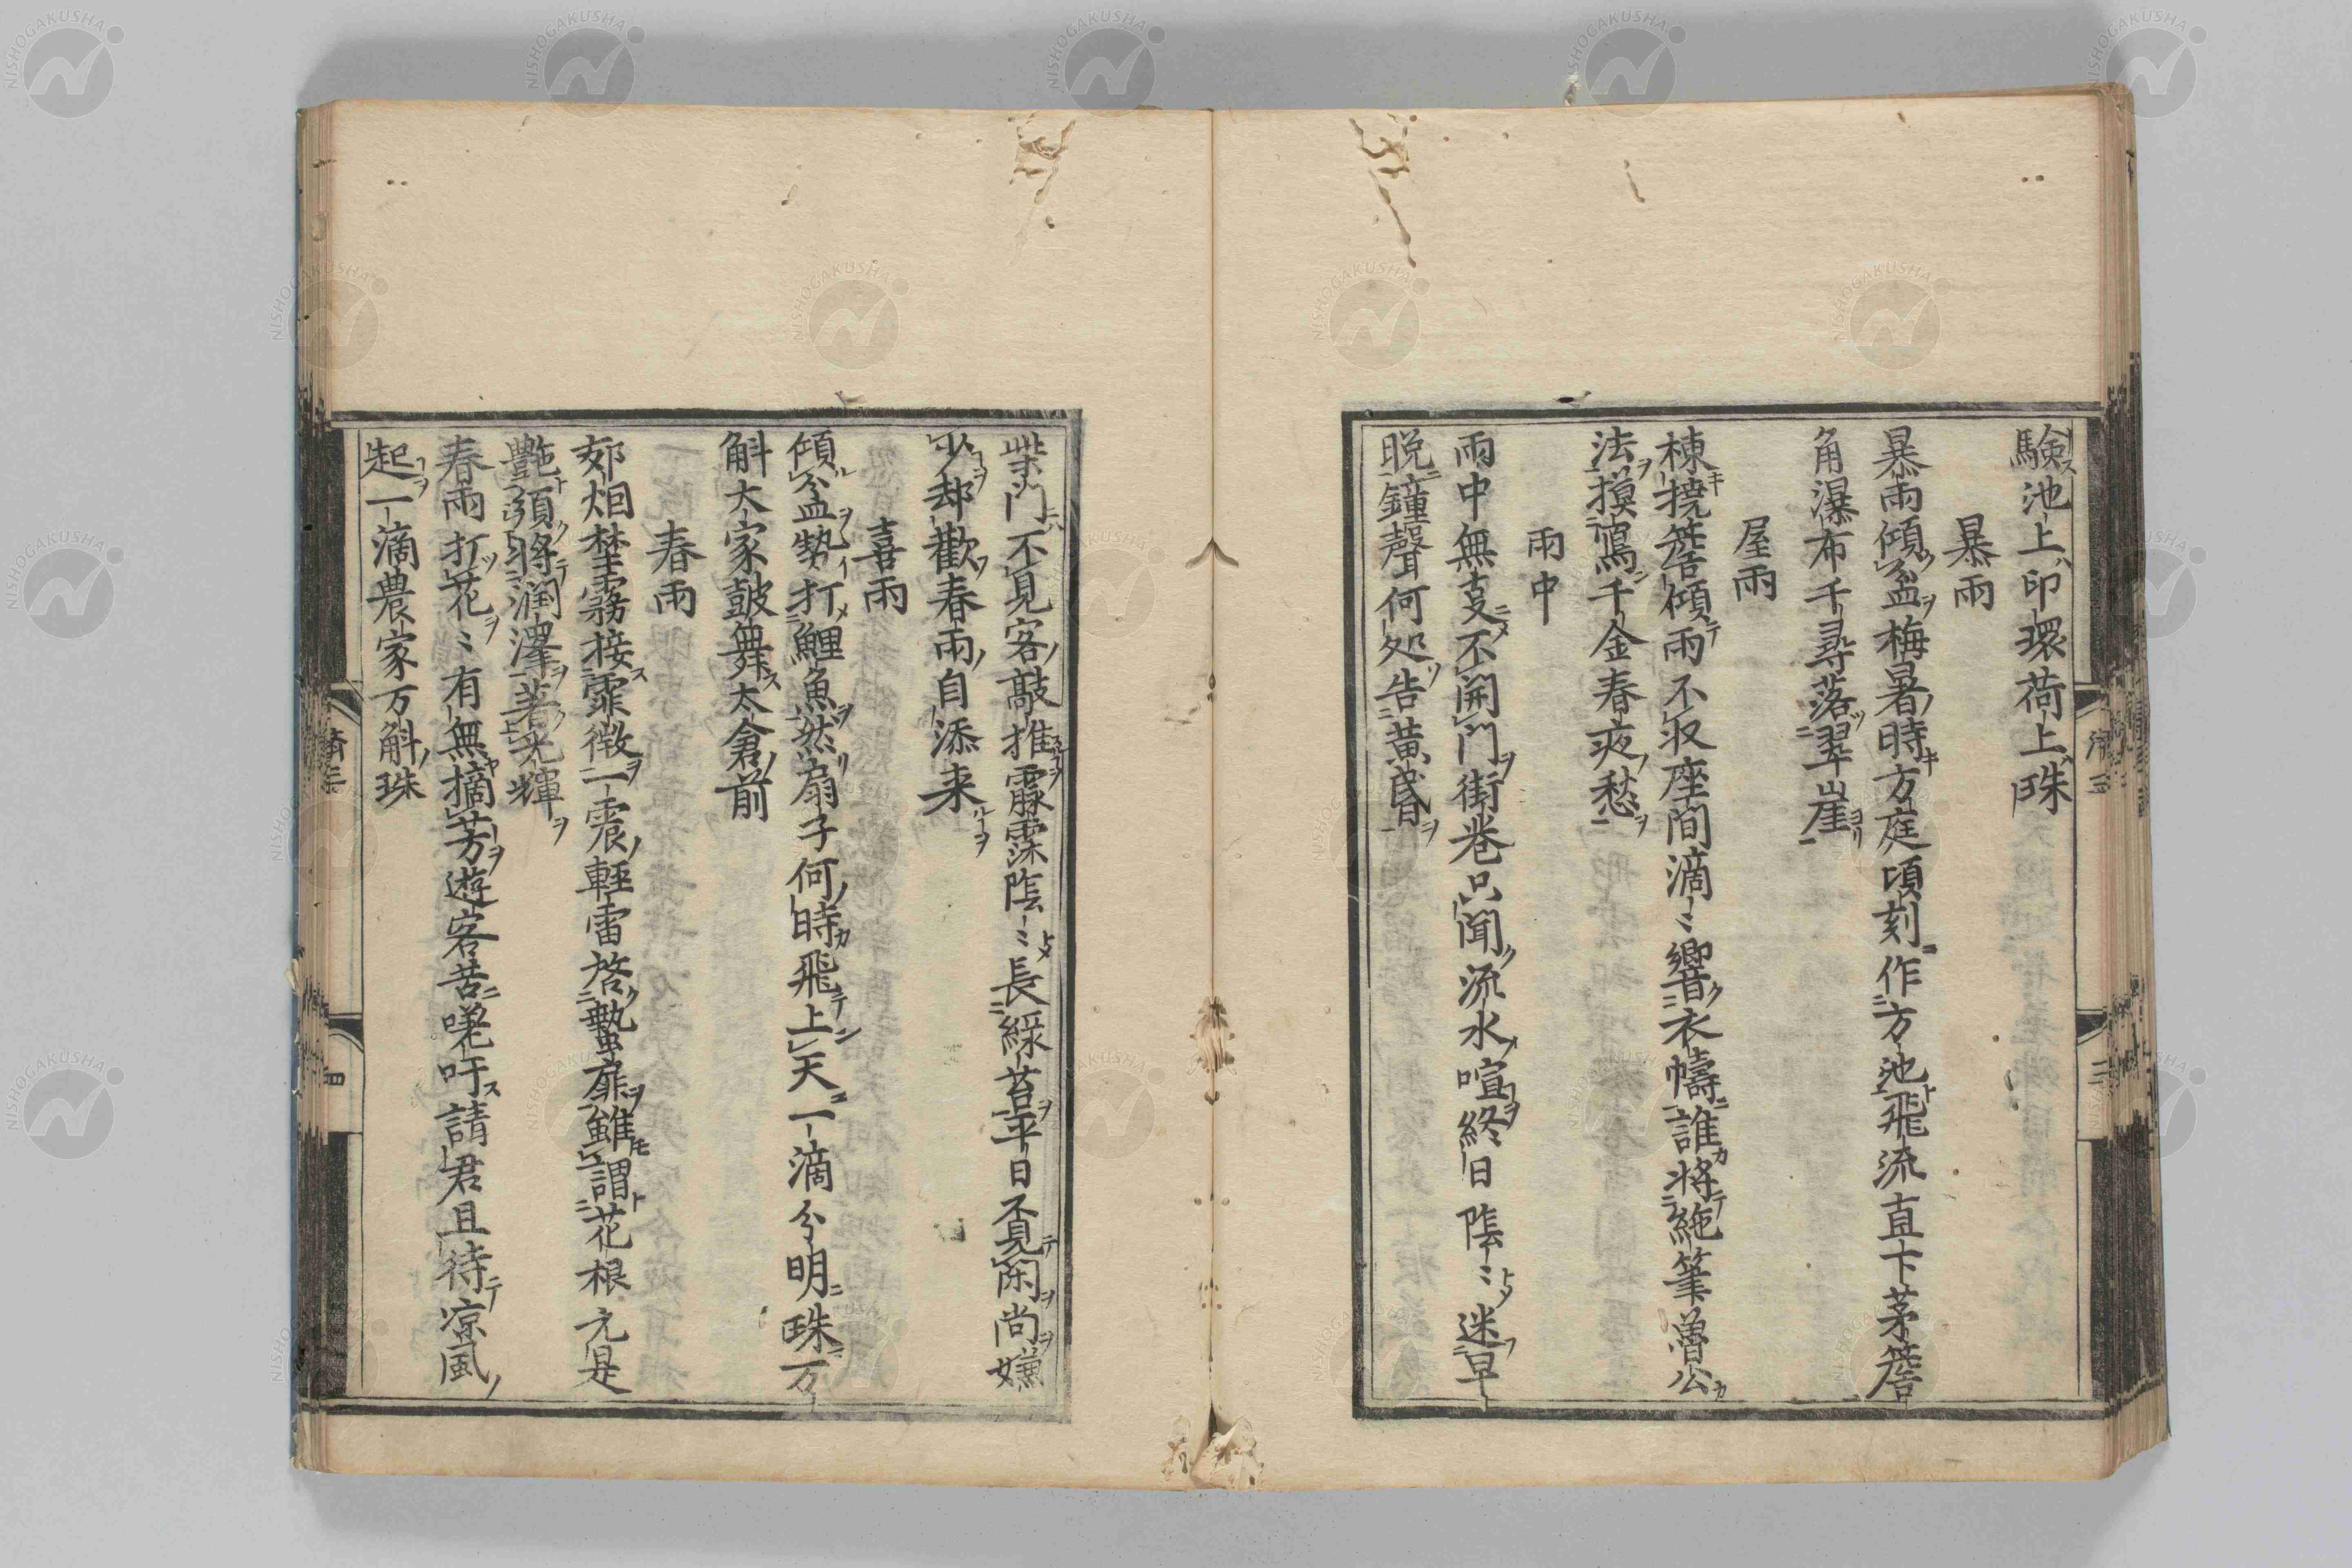 驗池上印環荷上珠
暴雨
暴雨傾盆梅暑時方庭頃刻作方池飛流直下茅簷
角瀑布千尋落翠崖
屋雨
棟撓簷傾雨不収座間滴〻響衣幬誰將絶筆魯公
法摸寫千金春夜愁
雨中
雨中無叓不開門街巷只聞流水喧終日陰〻迷早
晩鐘聲何処告黄昏
柴門不見客敲推霡霂陰〻長緑苔平日不覓閑尚嬾
少却歡春雨自添来
喜雨
傾盆勢打鯉魚然扇子何時飛上天一滴分明珠万
斛大家鼓舞太倉前
春雨
郊烟埜霧接霏微一震輕雷啓蟄扉雖謂花根元是
艶須將潤澤著光輝
春雨打花〻有無摘芳遊客苦嗟吁請君且待涼風
起一滴農家万斛珠
NISHOGAKUSHA